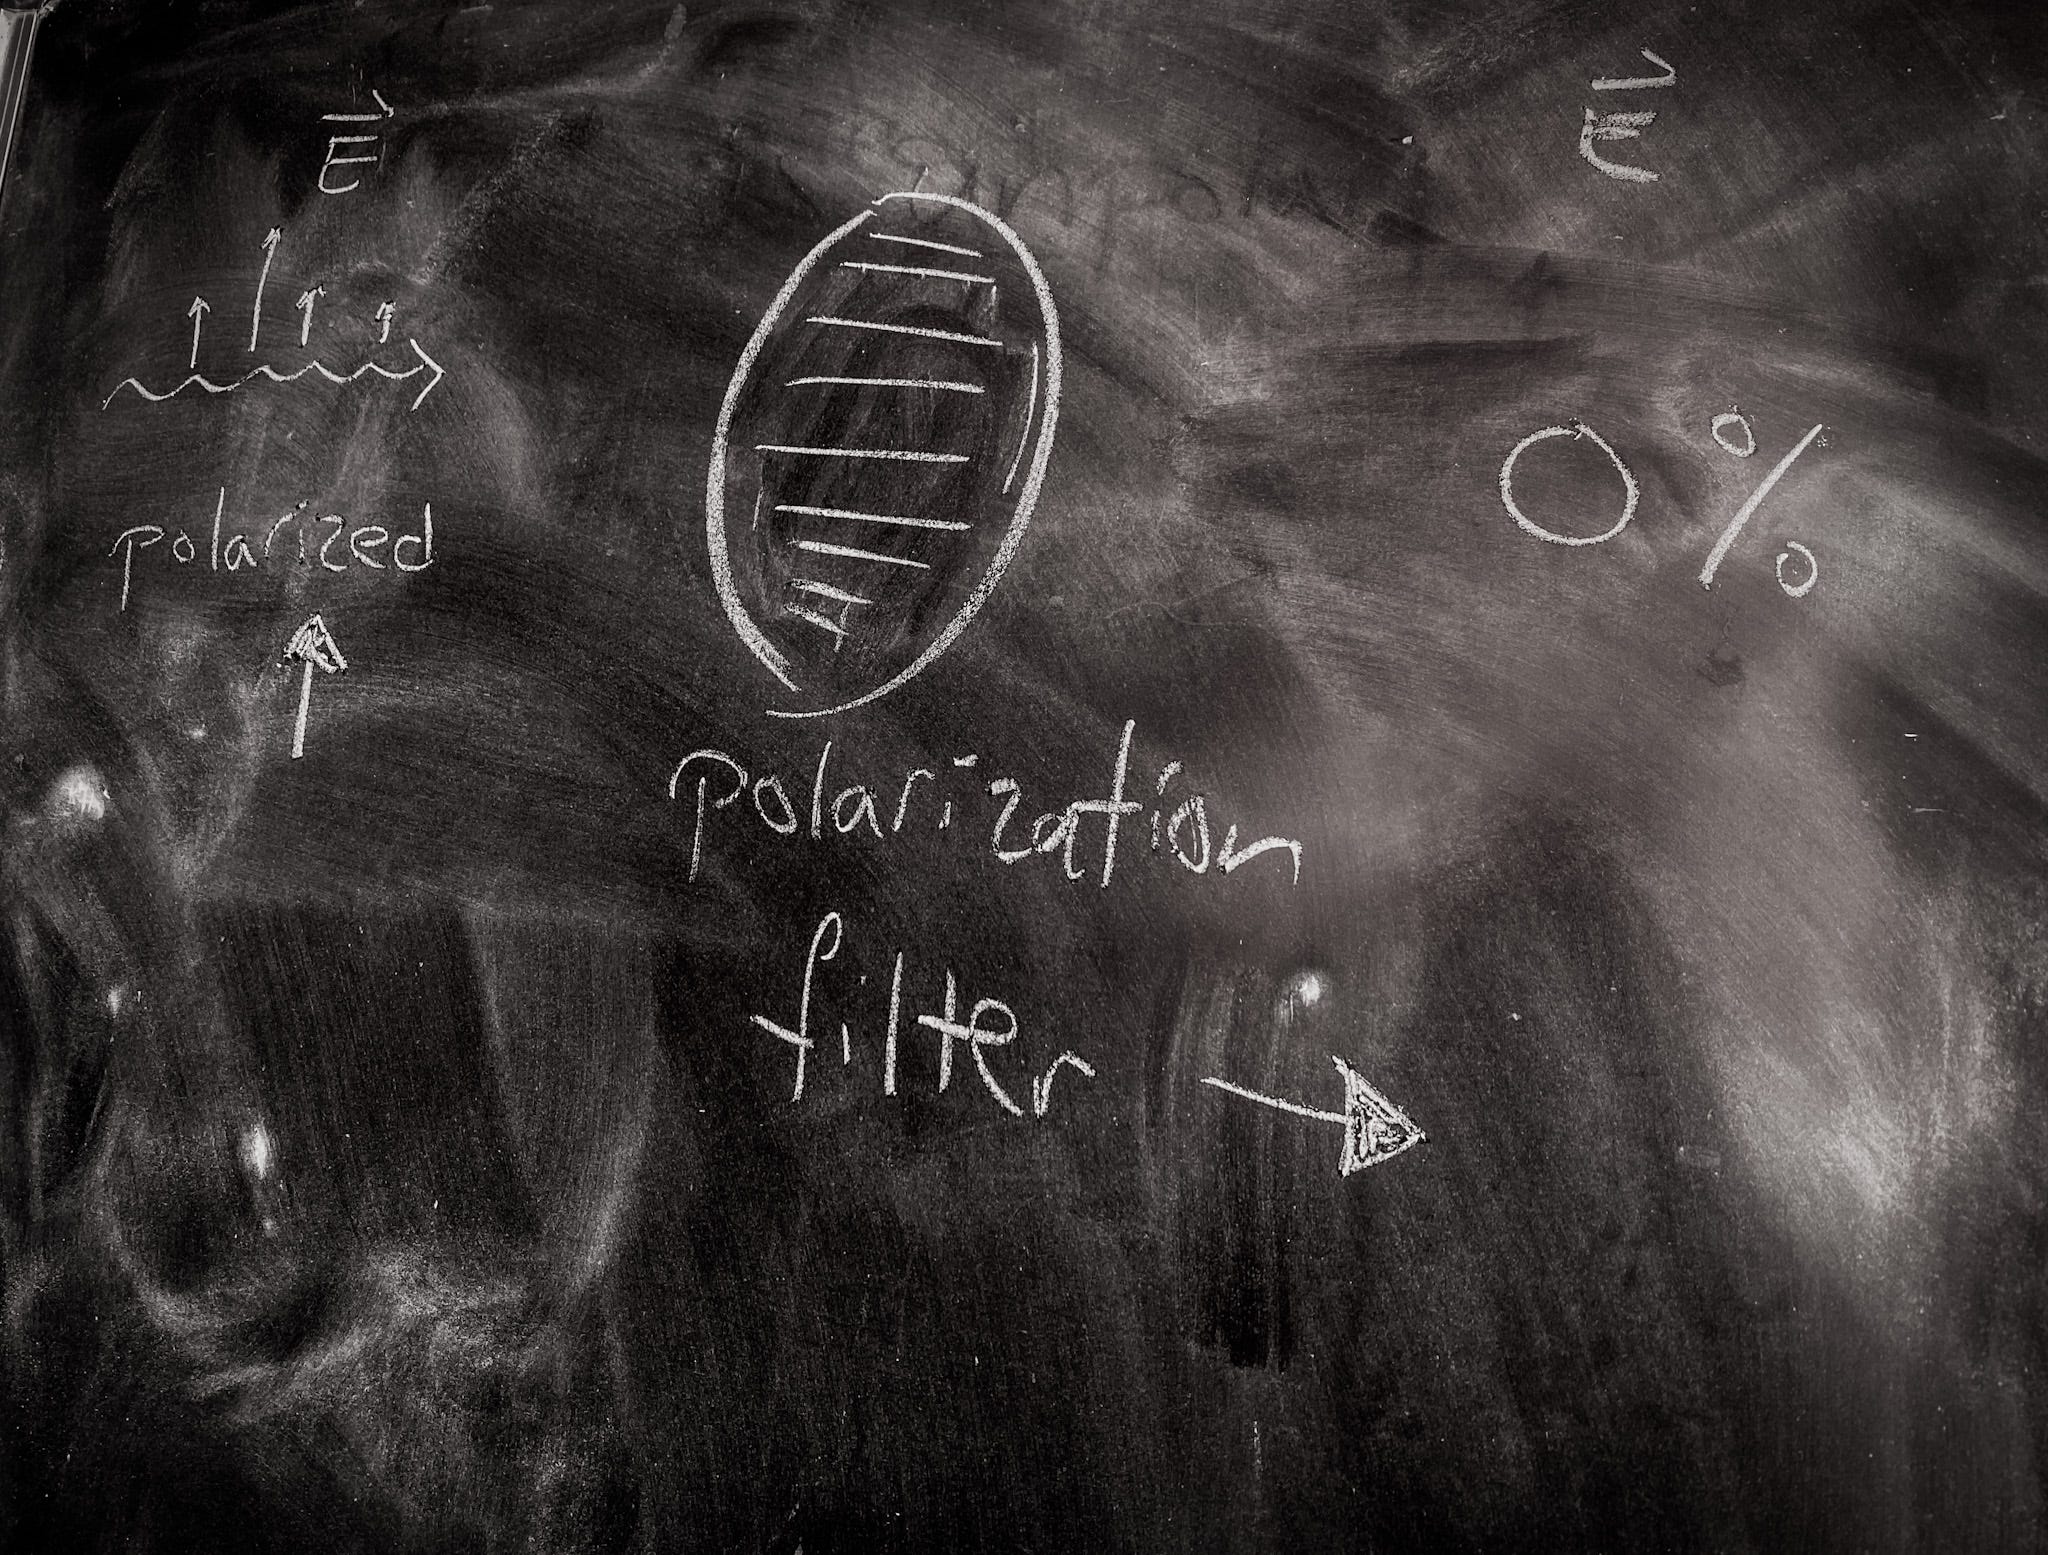 E⃗
E⃗
0%
polarized
polarization
filter